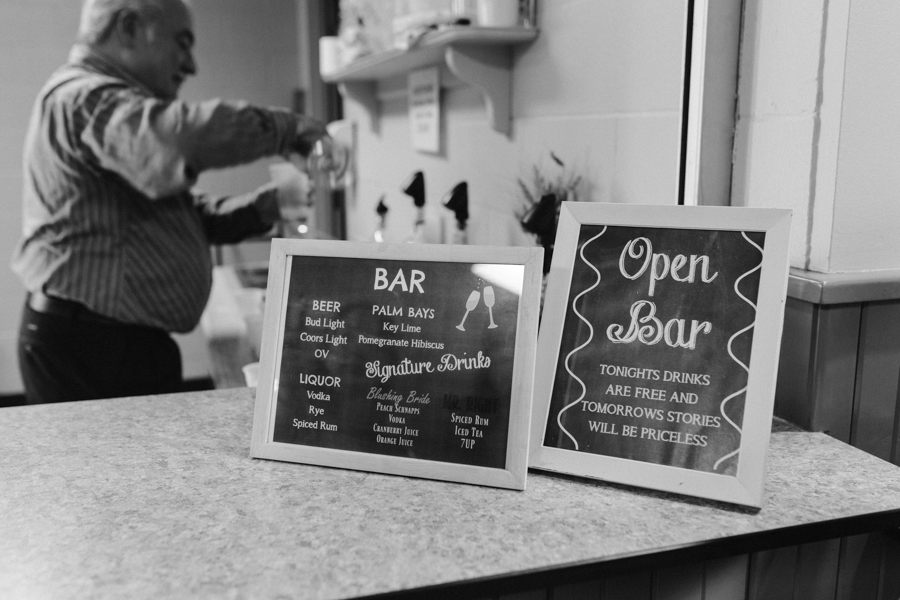 BAR
BEER
Bud Light
Coors Light
OV
LIQUOR
Vodka
Rye
Spiced Rum
PALM BAYS
Key Lime
Pomegranate Hibiscus
Signature Drinks
Blushing Bride
PEACH SCHNAPPS
VODKA
CRANBERRY JUICE
ORANGE JUICE
MR. RIGHT
SPICED RUM
ICED TEA
7UP
Open
Bar
TONIGHTS DRINKS
ARE FREE AND
TOMORROWS STORIES
WILL BE PRICELESS